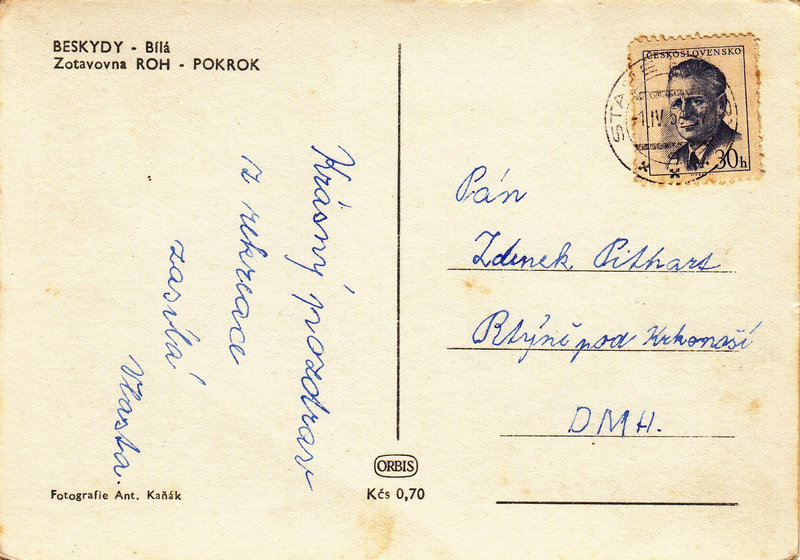 BESKYDY - Bílá
Zotavovna ROH - POKROK
Krásný pozdrav
z rekreace
zasílá
Vlasta.
Fotografie Ant. Kaňák
ORBIS
Kčs 0,70
ČESKOSLOVENSKO
30h
Pán
Zdenek Pithart
Rtýně pod Krkonoší
DMH.